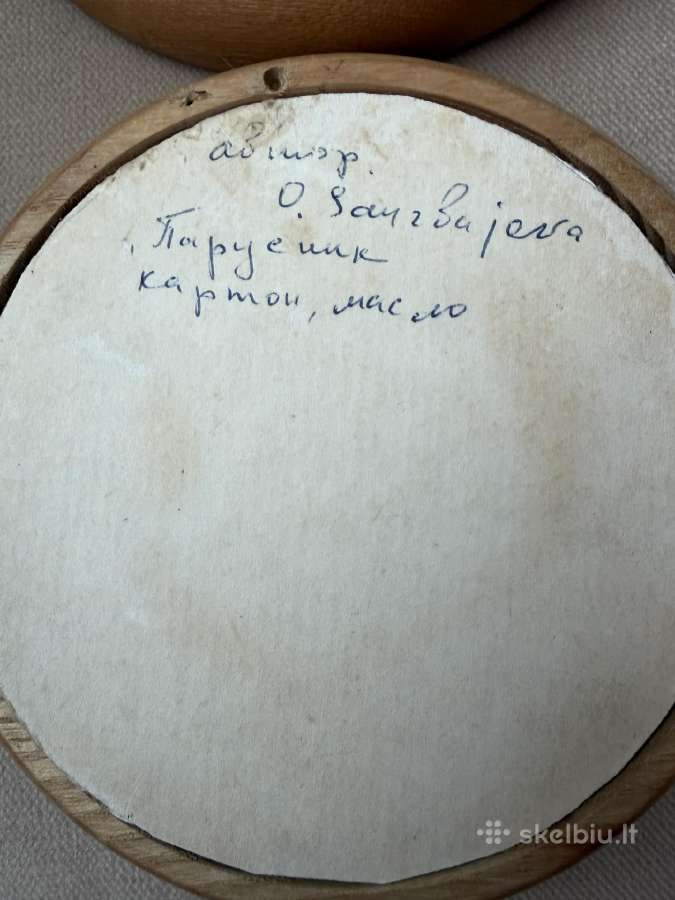 автор.
O.
Парусник
картон, масло
skelbiu.lt